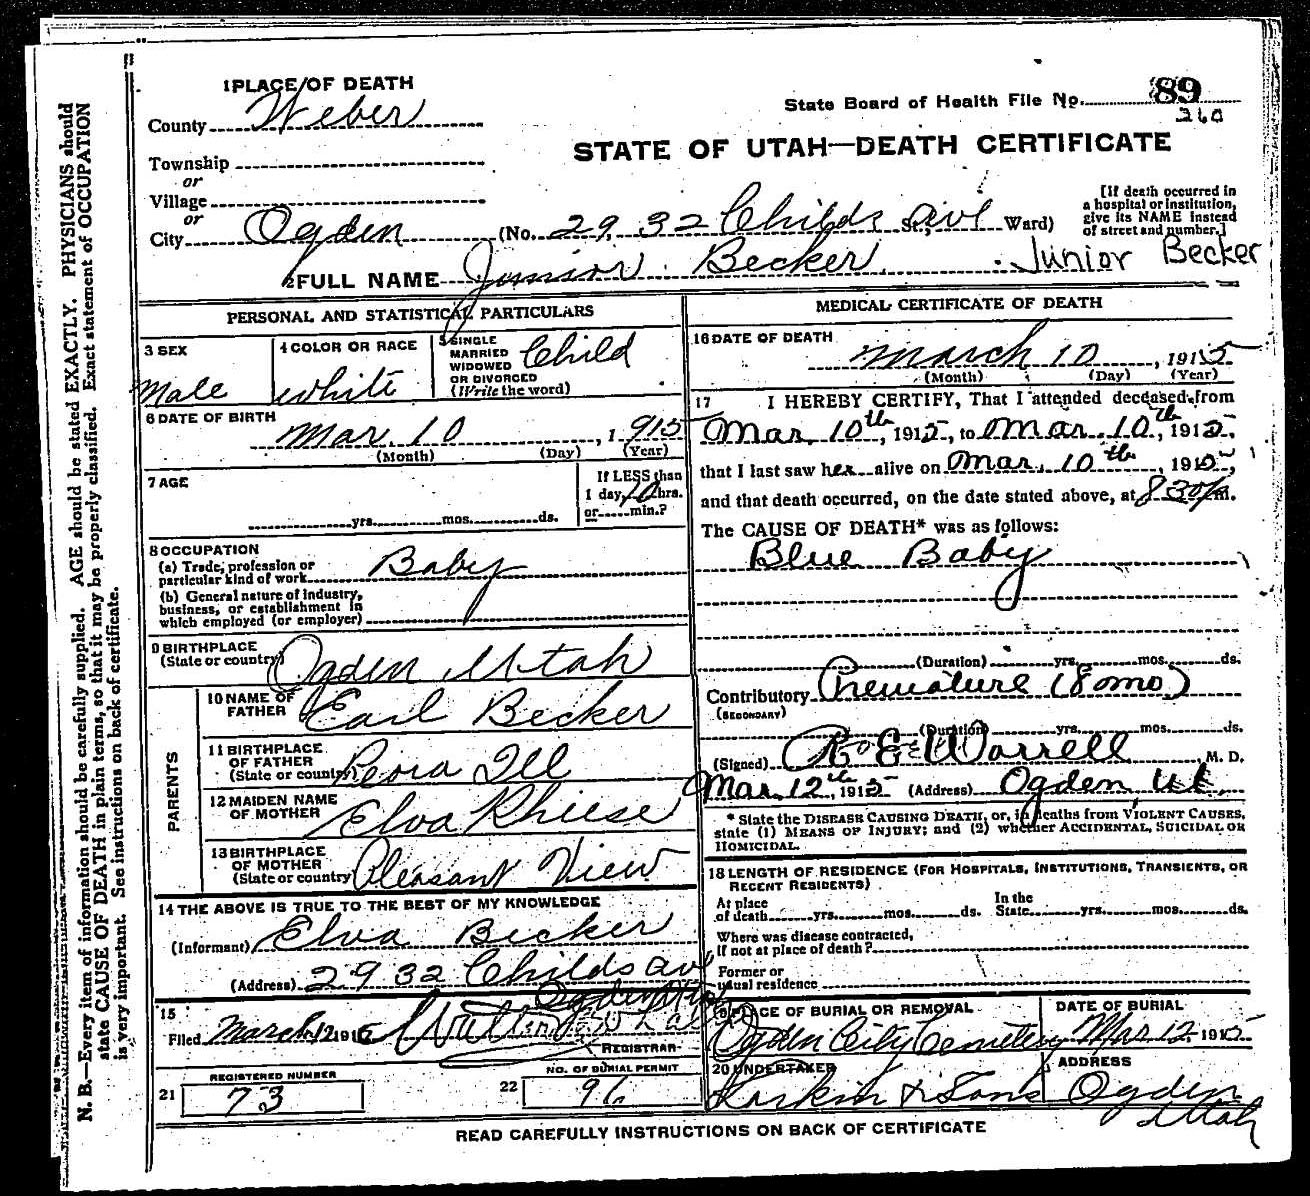 1 PLACE OF DEATH
County Weber
Township
or
Village
or
City Ogden (No. 2932 Childs St., ave Ward)
State Board of Health File No. 89
260
STATE OF UTAH—DEATH CERTIFICATE
[If death occurred in
a hospital or institution,
give its NAME instead
of street and number.]
2 FULL NAME Junior Becker Junior Becker
PERSONAL AND STATISTICAL PARTICULARS
3 SEX
Male
4 COLOR OR RACE
white
5 SINGLE
MARRIED
WIDOWED
OR DIVORCED
(Write the word)
Child
6 DATE OF BIRTH
Mar 10, 1 915
(Month) (Day) (Year)
7 AGE
yrs. mos. ds.
If LESS than
1 day, 10 hrs.
or min.?
8 OCCUPATION
(a) Trade, profession or
particular kind of work Baby
(b) General nature of industry,
business, or establishment in
which employed (or employer)
9 BIRTHPLACE
(State or country) Ogden Utah
PARENTS
10 NAME OF
FATHER Earl Becker
11 BIRTHPLACE
OF FATHER
(State or country) Peora Ill
12 MAIDEN NAME
OF MOTHER Elva Rhiese
13 BIRTHPLACE
OF MOTHER
(State or country) Pleasant View
14 THE ABOVE IS TRUE TO THE BEST OF MY KNOWLEDGE
(Informant) Elva Becker
(Address) 2932 Childs ave
Ogden Utah
15
Filed March 12 1915
REGISTRAR
21 REGISTERED NUMBER
73
22 NO. OF BURIAL PERMIT
96
MEDICAL CERTIFICATE OF DEATH
16 DATE OF DEATH
March 10, 1915
(Month) (Day) (Year)
17 I HEREBY CERTIFY, That I attended deceased from
Mar. 10th, 1915, to Mar. 10th, 1915,
that I last saw her alive on Mar. 10th, 1915,
and that death occurred, on the date stated above, at 8 30 P m.
The CAUSE OF DEATH* was as follows:
Blue Baby
(Duration) yrs. mos. ds.
Contributory Premature (8 mo)
(SECONDARY)
(Duration) yrs. mos. ds.
(Signed) R E Worrell M. D.
Mar 12th, 1915 (Address) Ogden, Ut.
* State the DISEASE CAUSING DEATH, or, in deaths from VIOLENT CAUSES,
state (1) MEANS OF INJURY; and (2) whether ACCIDENTAL, SUICIDAL OR
HOMICIDAL.
18 LENGTH OF RESIDENCE (FOR HOSPITALS, INSTITUTIONS, TRANSIENTS, OR
RECENT RESIDENTS)
At place
of death yrs. mos. ds.
In the
State yrs. mos. ds.
Where was disease contracted,
if not at place of death?
Former or
usual residence
19 PLACE OF BURIAL OR REMOVAL
Ogden City Cemetery
DATE OF BURIAL
Mar 12 1915
20 UNDERTAKER
Larkin & Sons
ADDRESS
Ogden
Utah
READ CAREFULLY INSTRUCTIONS ON BACK OF CERTIFICATE
N. B.—Every item of information should be carefully supplied. AGE should be stated EXACTLY. PHYSICIANS should
state CAUSE OF DEATH in plain terms, so that it may be properly classified. Exact statement of OCCUPATION
is very important. See instructions on back of certificate.